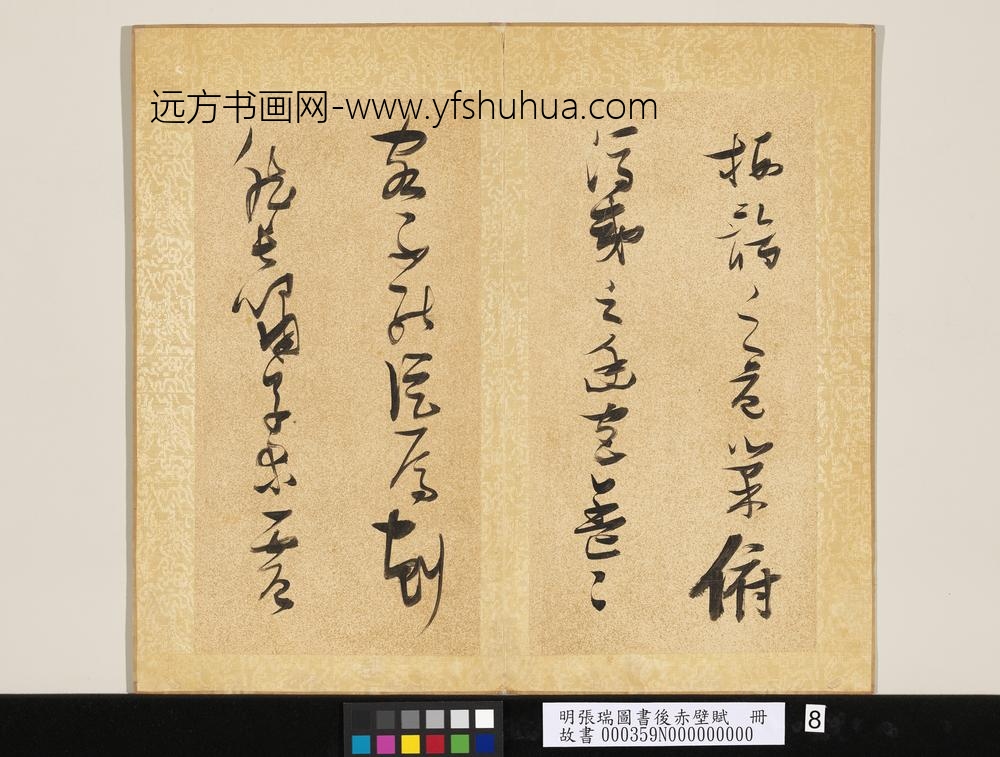 远方书画网-www.yfshuhua.com
栖鶻之危巢俯
馮夷之幽宮蓋二
客不能從焉劃
然長嘯草木震
明張瑞圖書後赤壁賦 冊
故書000359N000000000
8